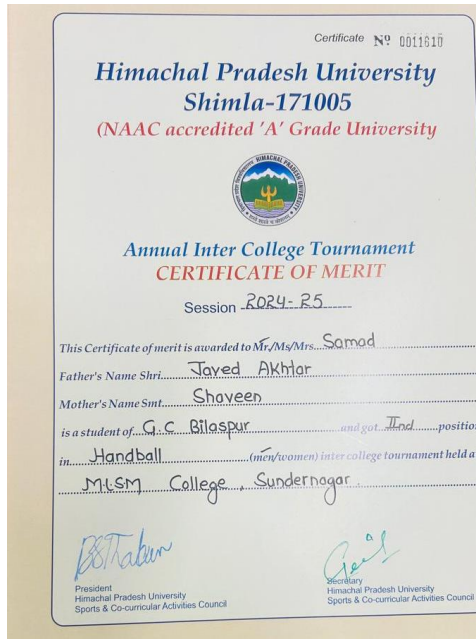 Certificate Nº 0011610
Himachal Pradesh University
Shimla-171005
(NAAC accredited 'A' Grade University
HIMACHAL PRADESH UNIVERSITY
Annual Inter College Tournament
CERTIFICATE OF MERIT
Session 2024-25
This Certificate of merit is awarded to Mr./Ms/Mrs. Samad
Father's Name Shri. Javed Akhtar
Mother's Name Smt. Shaveen
is a student of G.C Bilaspur and got IInd positio
in Handball (men/women) inter college tournament held a
MLSM College, Sundernagar.
President
Himachal Pradesh University
Sports & Co-curricular Activities Council
Secretary
Himachal Pradesh University
Sports & Co-curricular Activities Council